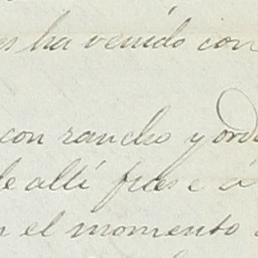 ha venido con
con rancho y
de allí fuese á
el momento